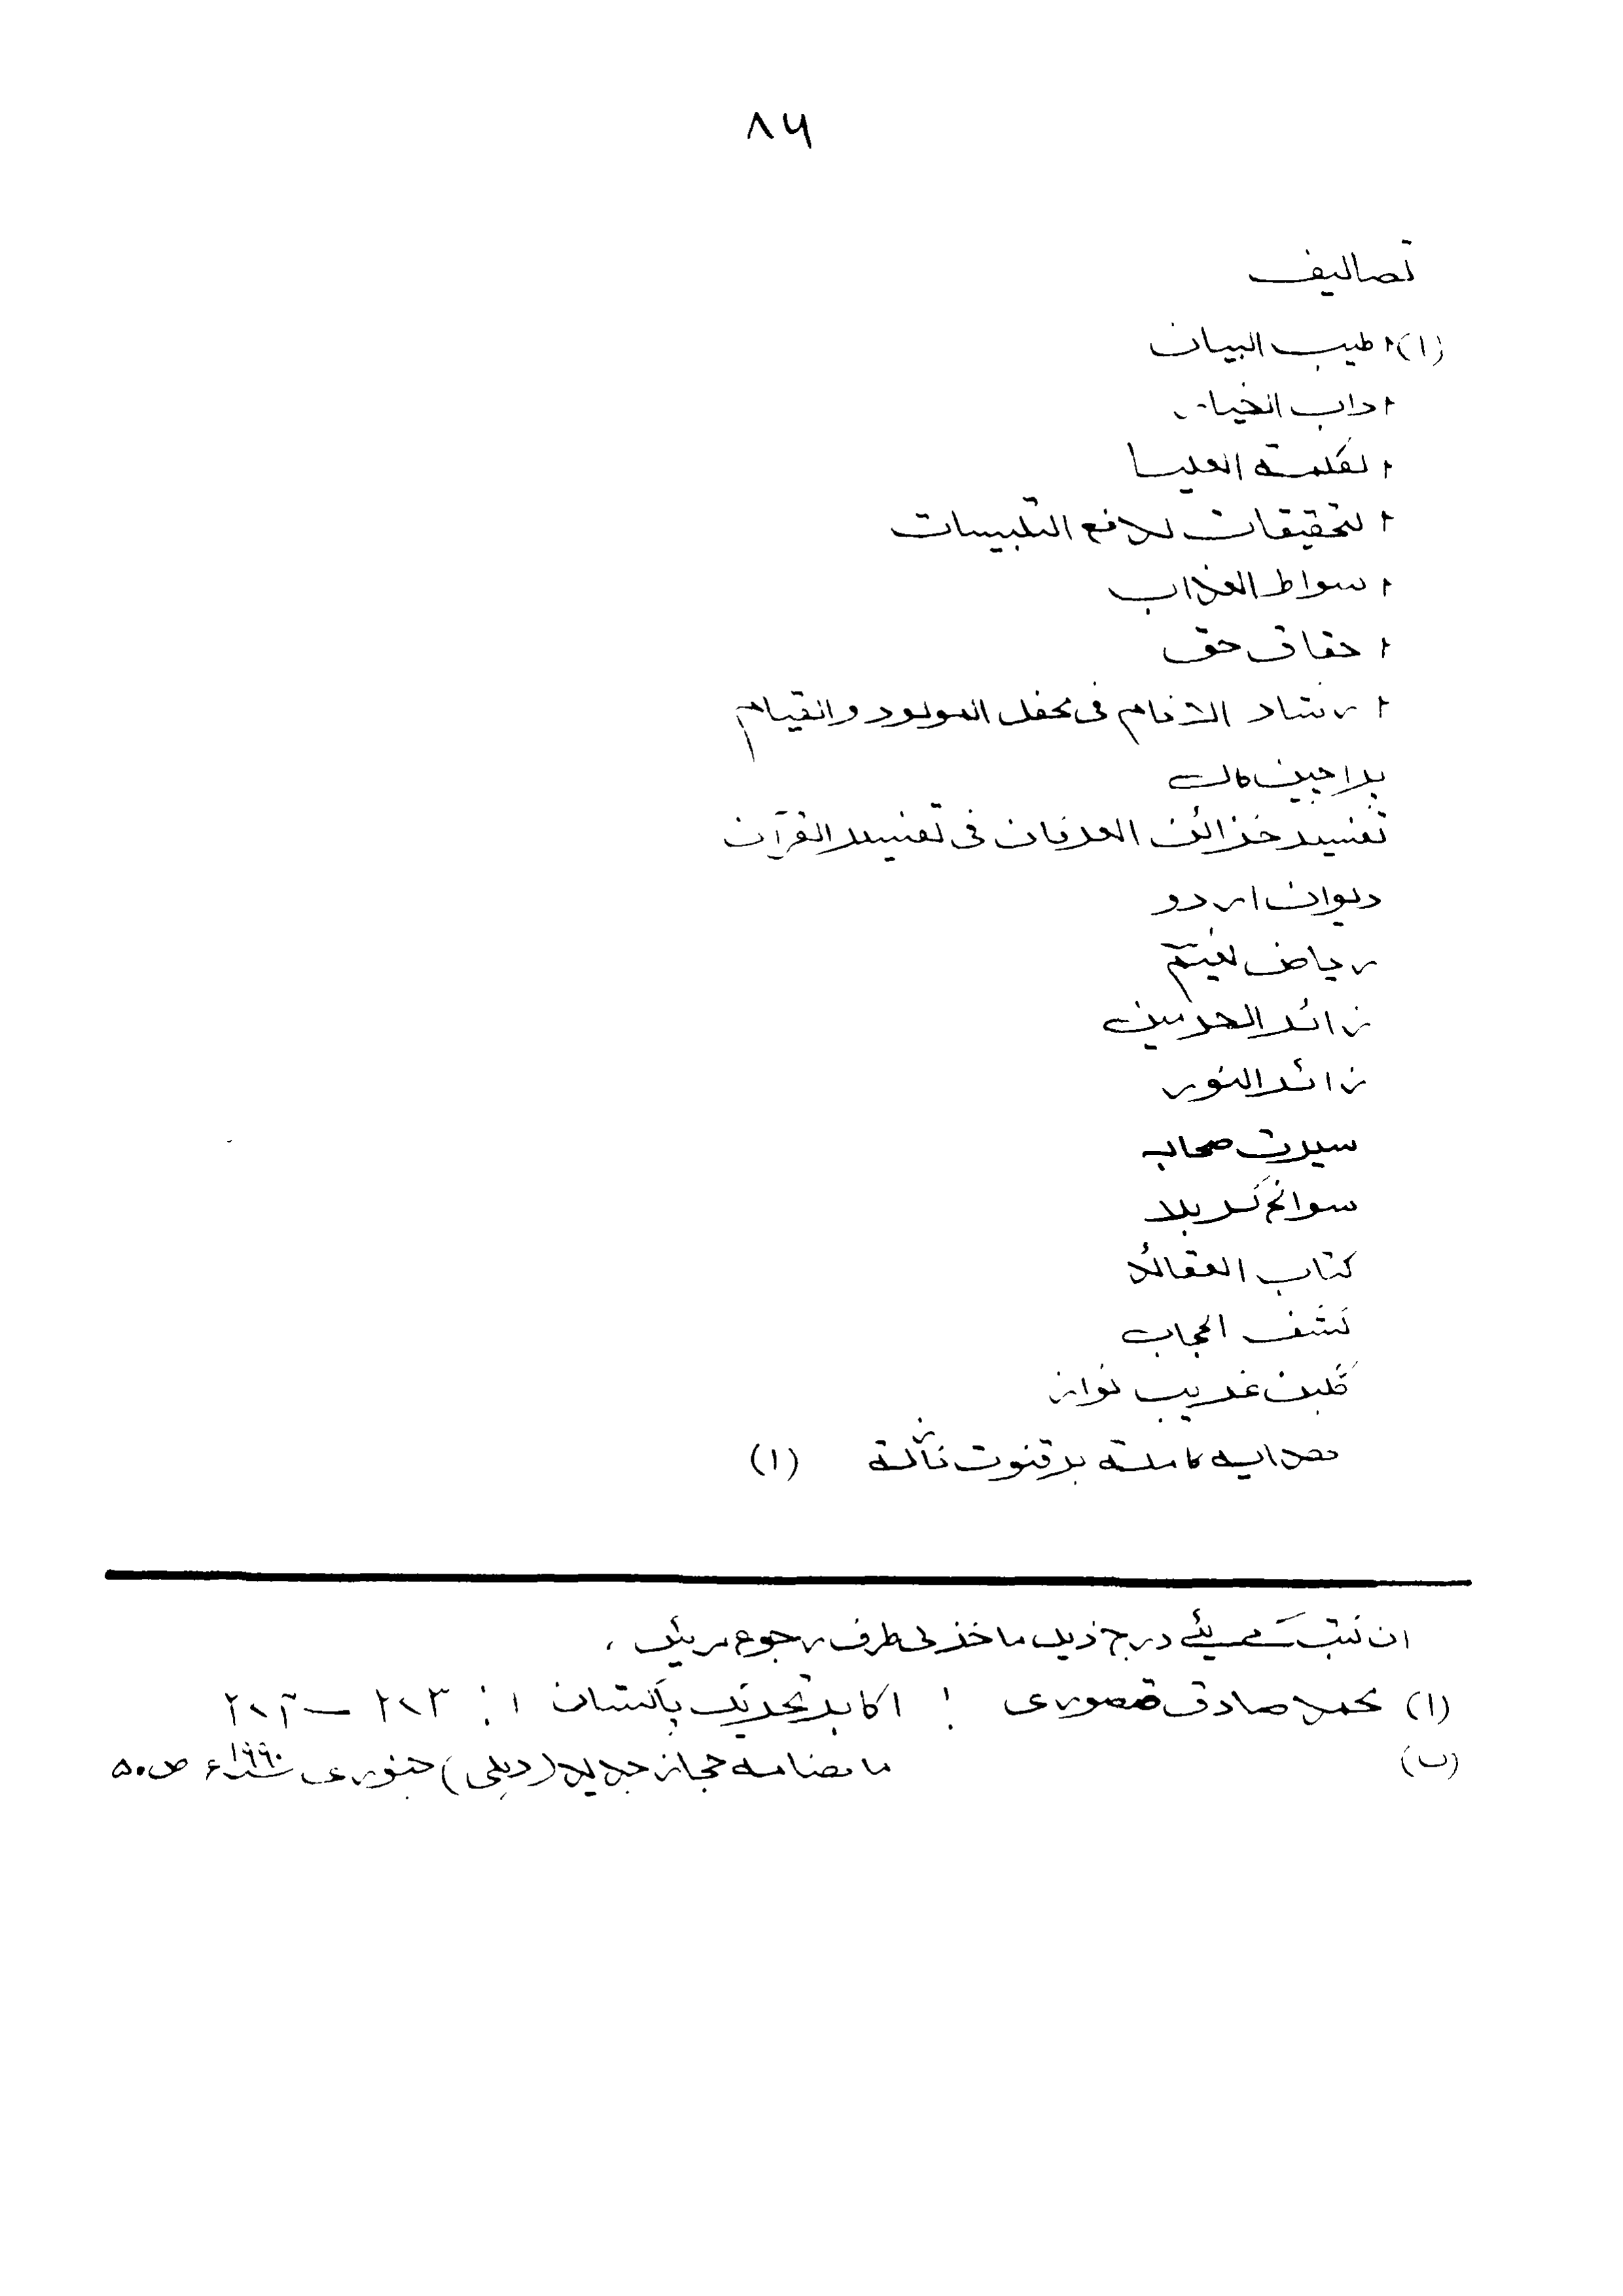 ۸۶
تصالیف
(۱) اطیب البیان
اداب الخیار
الکلمتہ العلیا
التحقیقات لدفع التلبیسات
اسواط العذاب
احقاق حق
ارشاد الانام فی محفل المولود والقیام
پراچین کال
تفسیر خزائن العرفان فی تفسیر القرآن
دیوان اردو
ریاض نعیم
زائر الحرمین
زائر النور
سیرت صحابہ
سوانح کربلا
کتاب العقائد
کشف الحجاب
گلبن غریب نواز
ھدایہ کاملتہ بر قنوت نازلتہ (۱)
ان کتب کے لیئے درج ذیل ماخذ کی طرف رجوع کریں ،
(۱) محمد صادق قصوری ! اکابر تحریک پاکستان ۱ :
(ب) ماھنامہ حجاز جدید (دہلی) جنوری ۱۹۹۰ء ص ۵۰